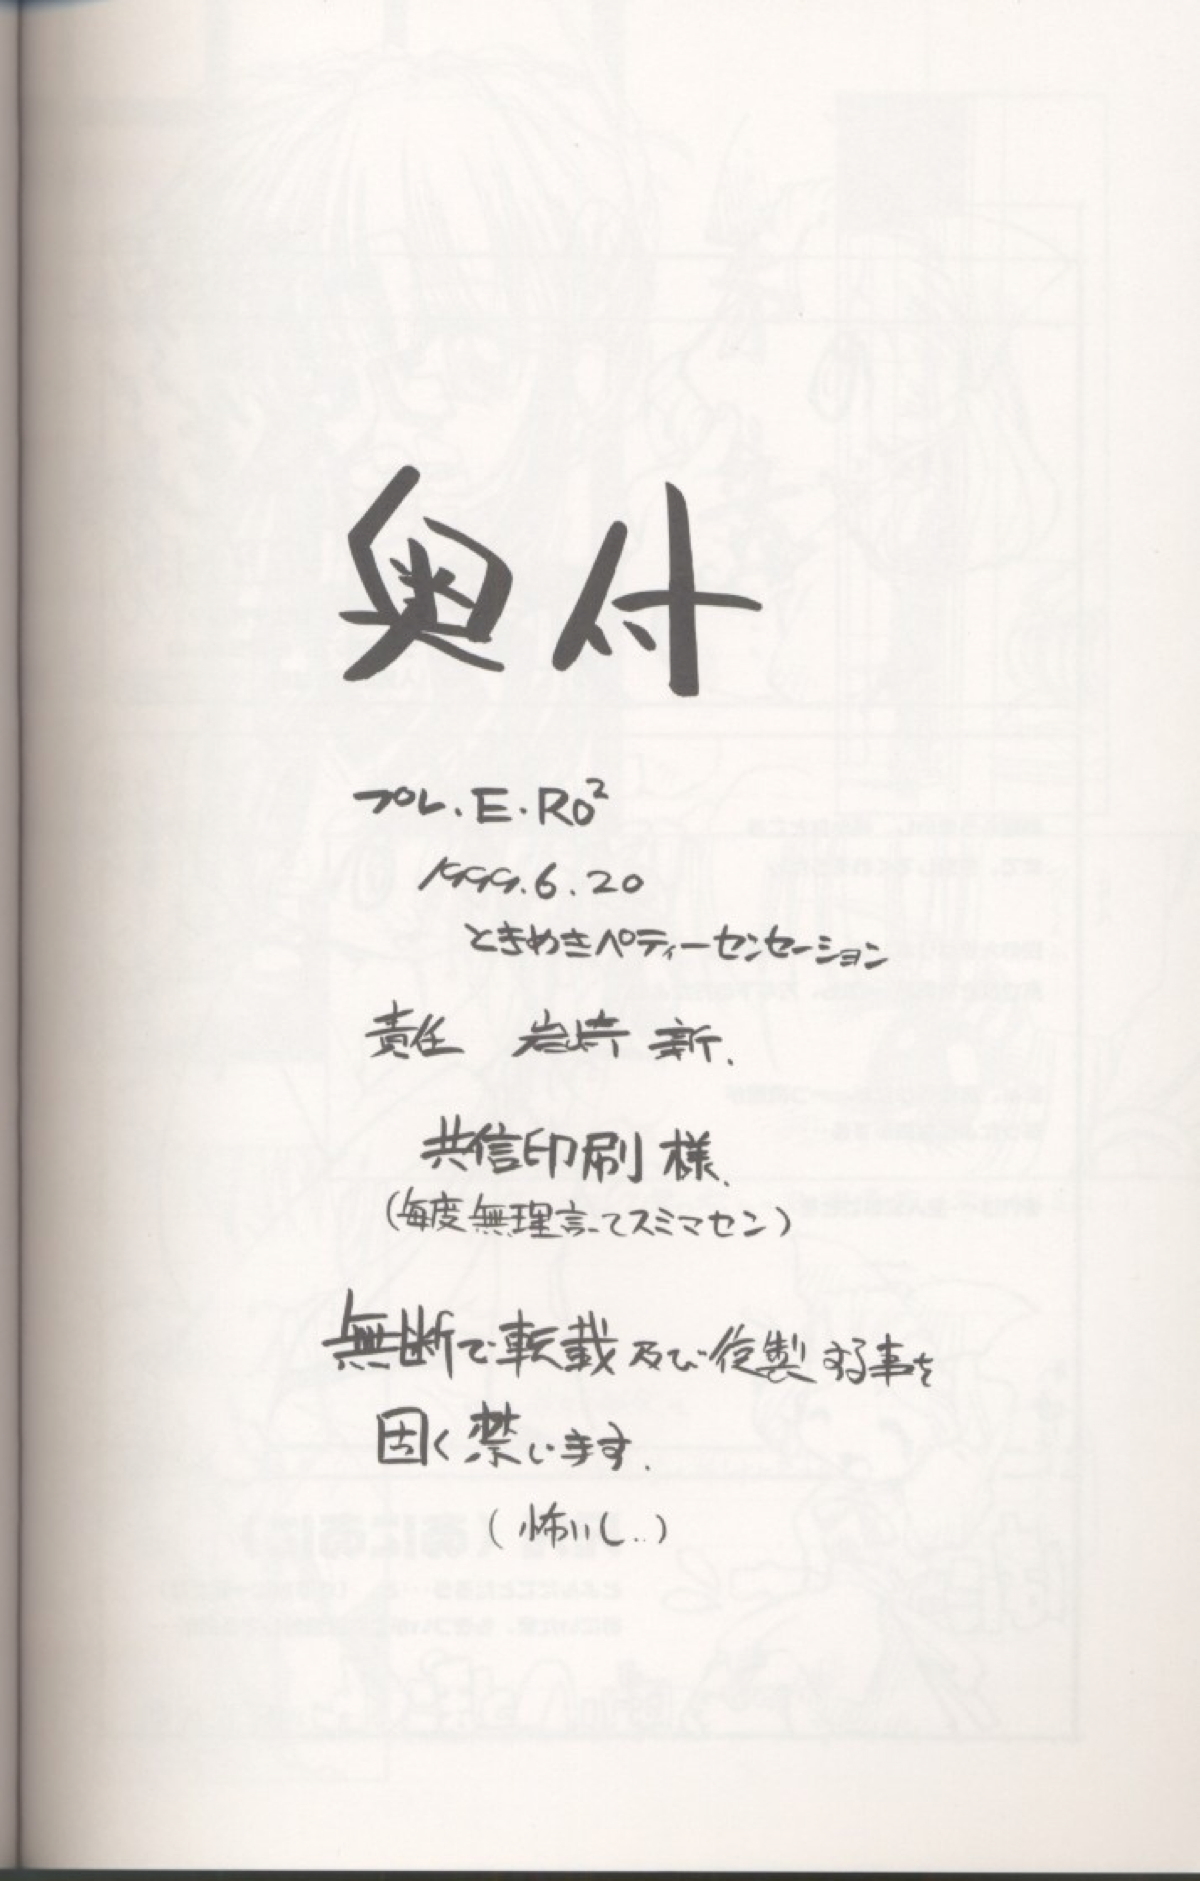 奥付
プレ.E.Ro²
1999.6.20
ときめきペティーセンセーション
責任 岩崎 新.
共信印刷 様.
(毎度無理言ってスミマセン)
無断で転載及び複製する事を
固く禁います.
(怖いし..)